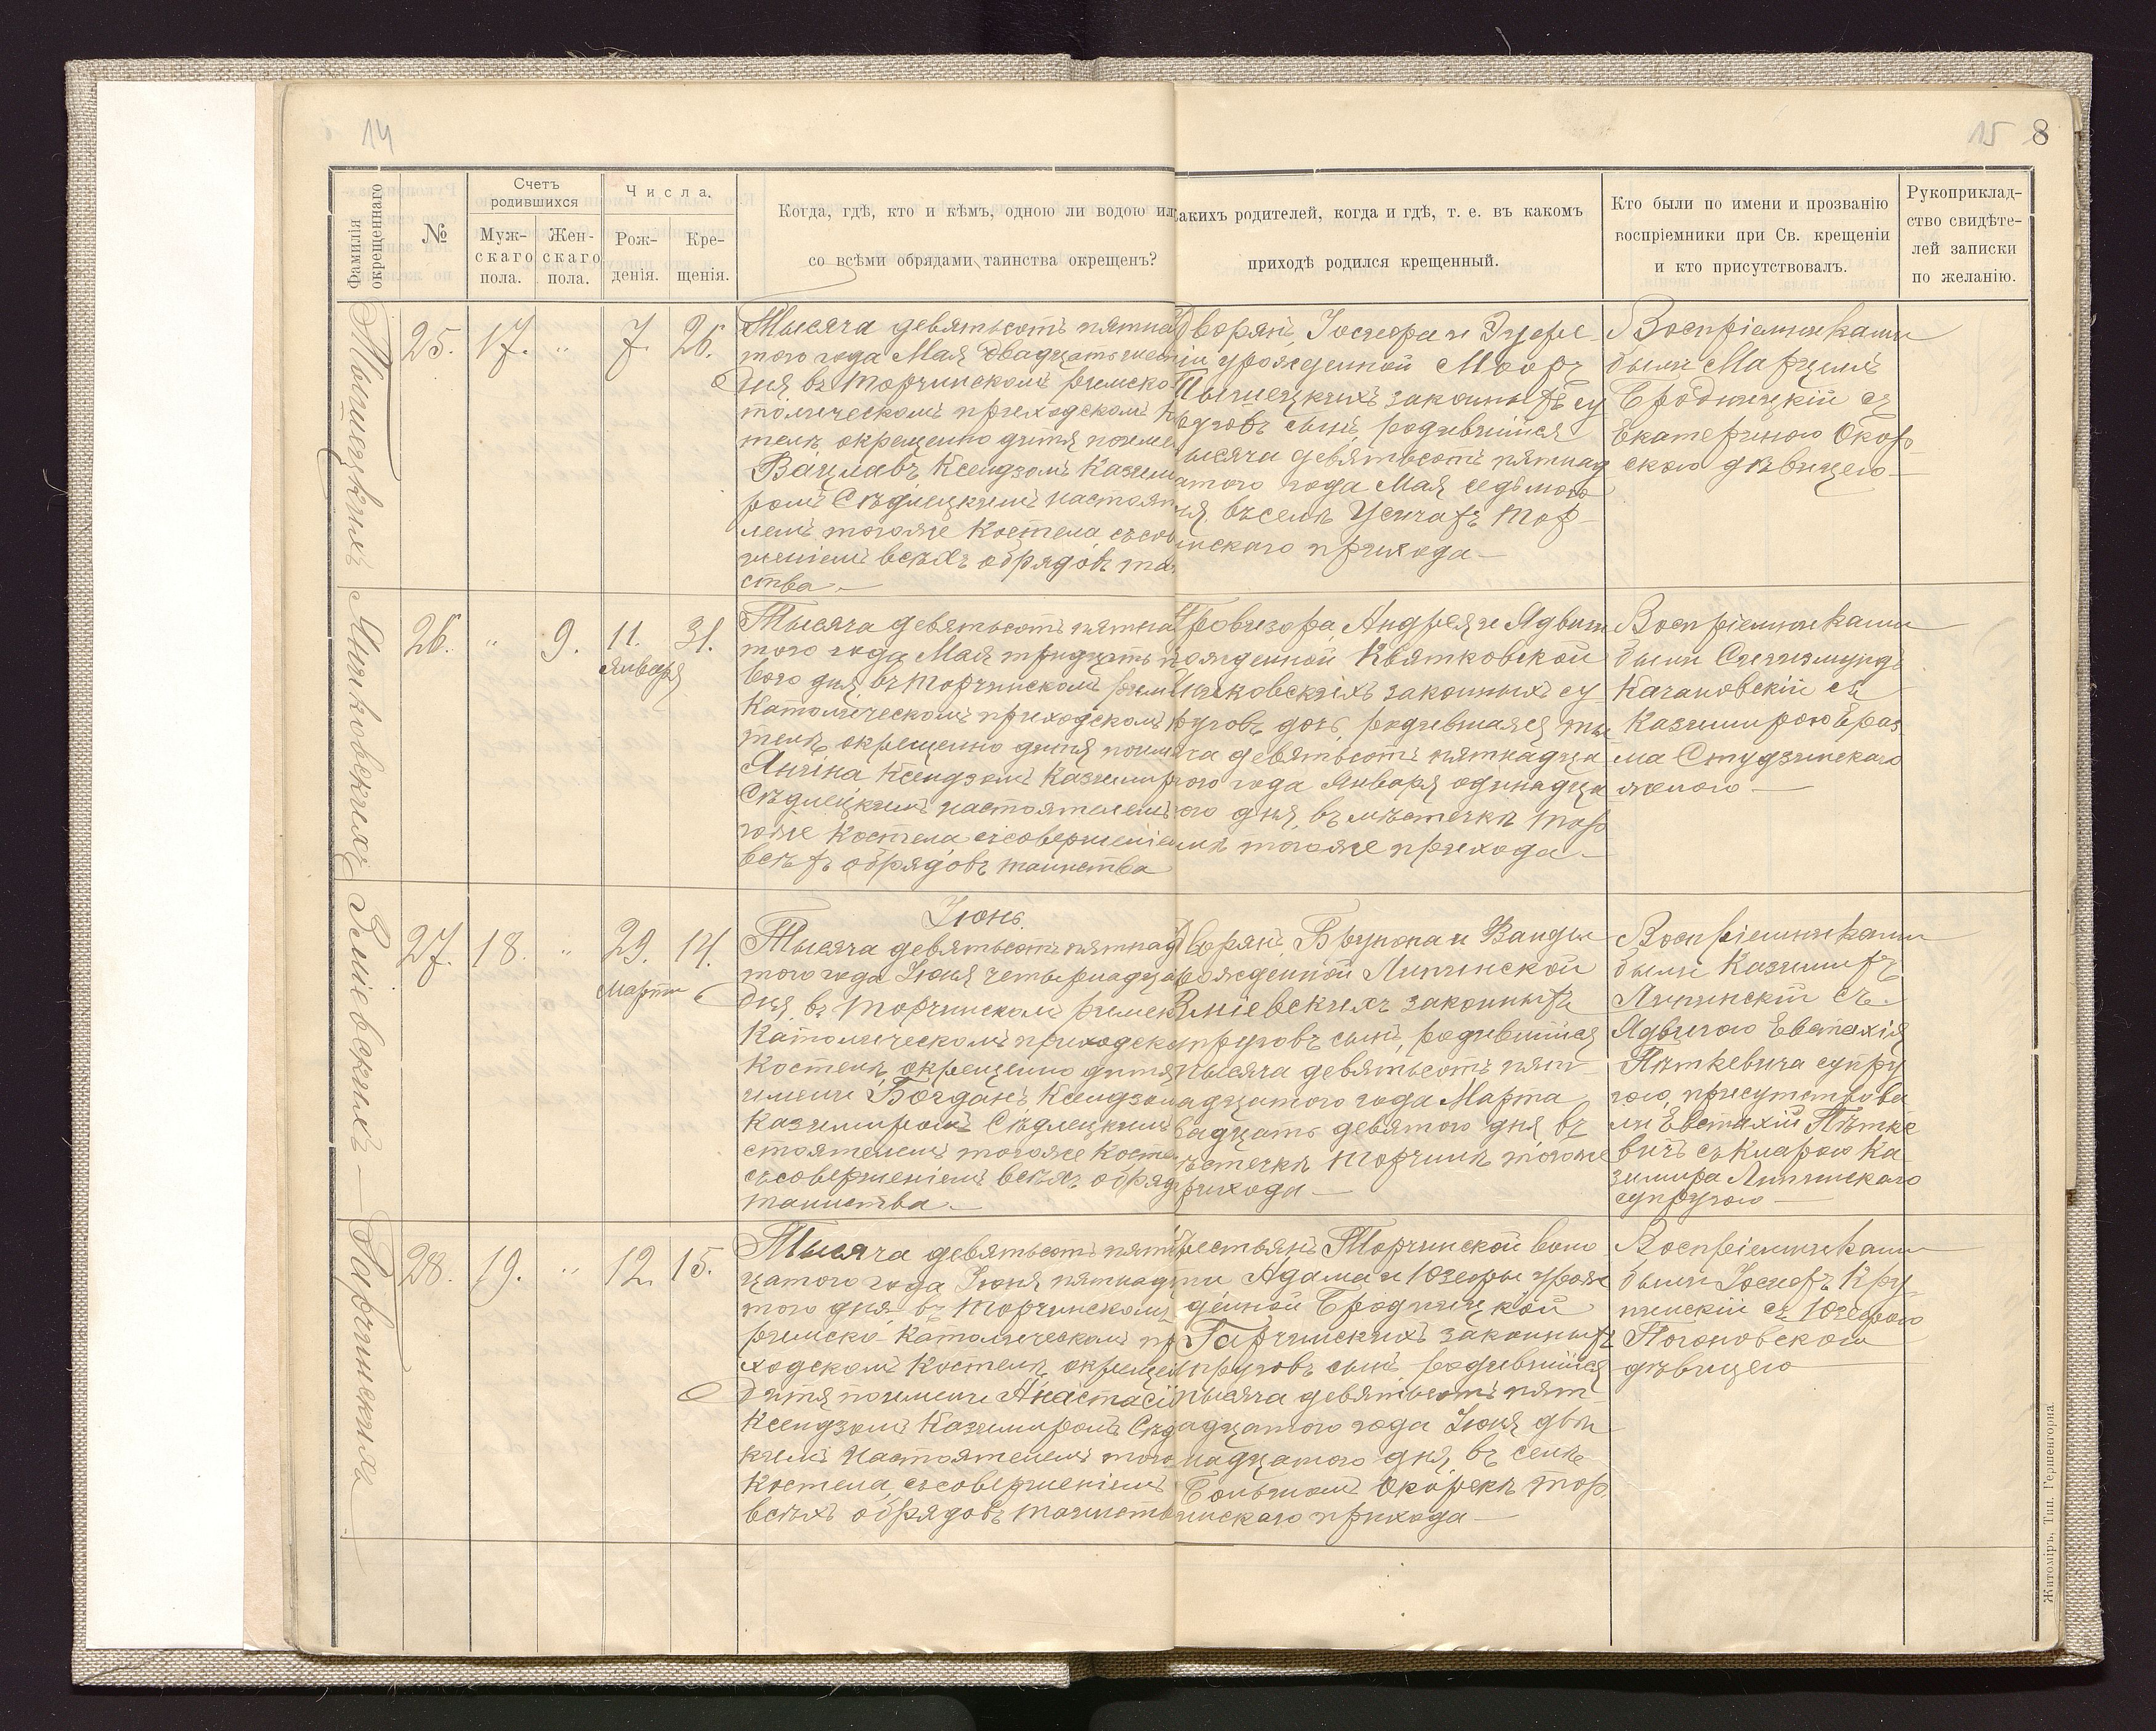 14
15 8
Фамилія окрещеннаго
№
Счетъ родившихся
Муж-
скаго
пола.
Жен-
скаго
пола.
Числа.
Рож-
денія.
Кре-
щенія.
Когда, гдѣ, кто и кѣмъ, одною ли водою ил
со всѣми обрядами таинства окрещенъ?
акихъ родителей, когда и гдѣ, т. е. въ какомъ
приходѣ родился крещенный.
Кто были по имени и прозванію
воспріемники при Св. крещеніи
и кто присутствовалъ.
Рукоприклад-
ство свидѣте-
лей записки
по желанію.
25. 17. " 7. 26.
Тысяча девятьсотъ пятна
того года Мая двадцать шест
дня въ Торчинскомъ римско
толическомъ приходскомъ К
телѣ окрещено дитя поиме
Вацлавъ Ксендзомъ Казими
ромъ Сѣдлецкимъ настоят
лемъ тогоже Костела съсов
шеніемъ всѣхъ обрядовъ та
ства
Дворянъ, Іосифа и
урожденной
законныхъ су
руговъ сынъ, родившійся
ысяча девятьсотъ пятнад
атого года Мая седьмого
ня, въ селѣ Усичахъ Тор
инскаго прихода
Воспріемниками
были Марцелъ
Бродницкій съ
Екатериною Окор
скою дѣвицею
26. " 9. 11. 31.
Января
Янковскихъ
Тысяча девятьсотъ пятна
того года Мая тридцать п
вого дня, въ Торчинскомъ Рим
Католическомъ приходскомъ
телѣ окрещено дитя поим
Янина Ксендзомъ Казимир
Сѣдлецкимъ настоятелемъ
гоже Костела съсовершеніе
всѣхъ обрядовъ таинства
Провизора, Андрея и Ядвиги
рожденной Квятковской
Янковскихъ законныхъ су
руговъ дочь, родившаяся ты
ча девятьсотъ пятнадца
ого года Января одинадца
ого дня, въ мѣстечкѣ Тор
инѣ тогоже прихода
Воспріемниками
были Сигизмундъ
Качановскій съ
Казимирою Ераз
ма Студзинскаго
женою
Іюнь.
27. 18. " 29. 14.
Марта
Зміевскихъ
Тысяча девятьсотъ пятнад
того года Іюня четырнадца
дня, въ Торчинскомъ римск
Католическомъ приходско
Костелѣ, окрещено дитя
имени Богданъ Ксендзом
Казимиромъ Сѣдлецкимъ
стоятелемъ тогоже Косте
съсовершеніемъ всѣхъ обряд
таинства
Дворянъ, Брунона и Ванды
рожденной Липинской
Зміевскихъ законныхъ
упруговъ сынъ, родившійся
тысяча девятьсотъ пят
адцатого года Марта
вадцать девятого дня въ
ѣстечкѣ Торчинѣ тогоже
рихода
Воспріемниками
были Казимиръ
Липинскій съ
Ядвигою Евстахія
Пѣткевича супру
гою, присутствова
ли Евстахій Пѣтке
вичъ съ Кларою Ка
зимира Липинскаго
супругою
28. 19. " 12. 15.
Гарчинскихъ
Тысяча девятьсотъ пятн
цатого года Іюня пятнадц
того дня въ Торчинскомъ
римско Католическомъ пр
ходскомъ Костелѣ, окрещен
дитя поимени Анастасій
Ксендзомъ Казимиромъ Сѣд
кимъ Настоятелемъ того
Костела, съсовершеніемъ
всѣхъ обрядовъ таинств
рестьянъ Торчинской воло
ти Адама и Юзефы урож
денной Бродницкой
Гарчинскихъ законныхъ
упруговъ сынъ родившійся
тысяча девятьсотъ пят
адцатого года Іюня двѣ
надцатого дня, въ селѣ
Большомъ Окорскѣ Тор
инскаго прихода
Воспріемниками
были Іосифъ Кру
пинскій съ Юзефою
Погоновскою
дѣвицею
Житоміръ, Тип. Гершенгорна.